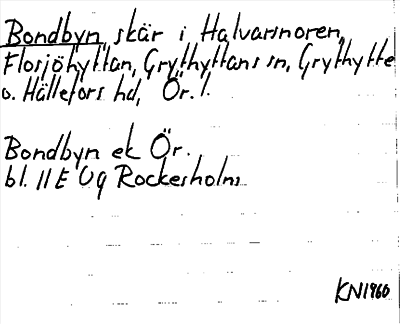 Bondbyn, skär i Halvarsnoren,
Flosjöhyttan, Grythyttans sn, Grythytte
o. Hällefors hd, Ör. l.
Bondbyn ek Ör.
bl. 11E Ug Rockesholm
KN1960